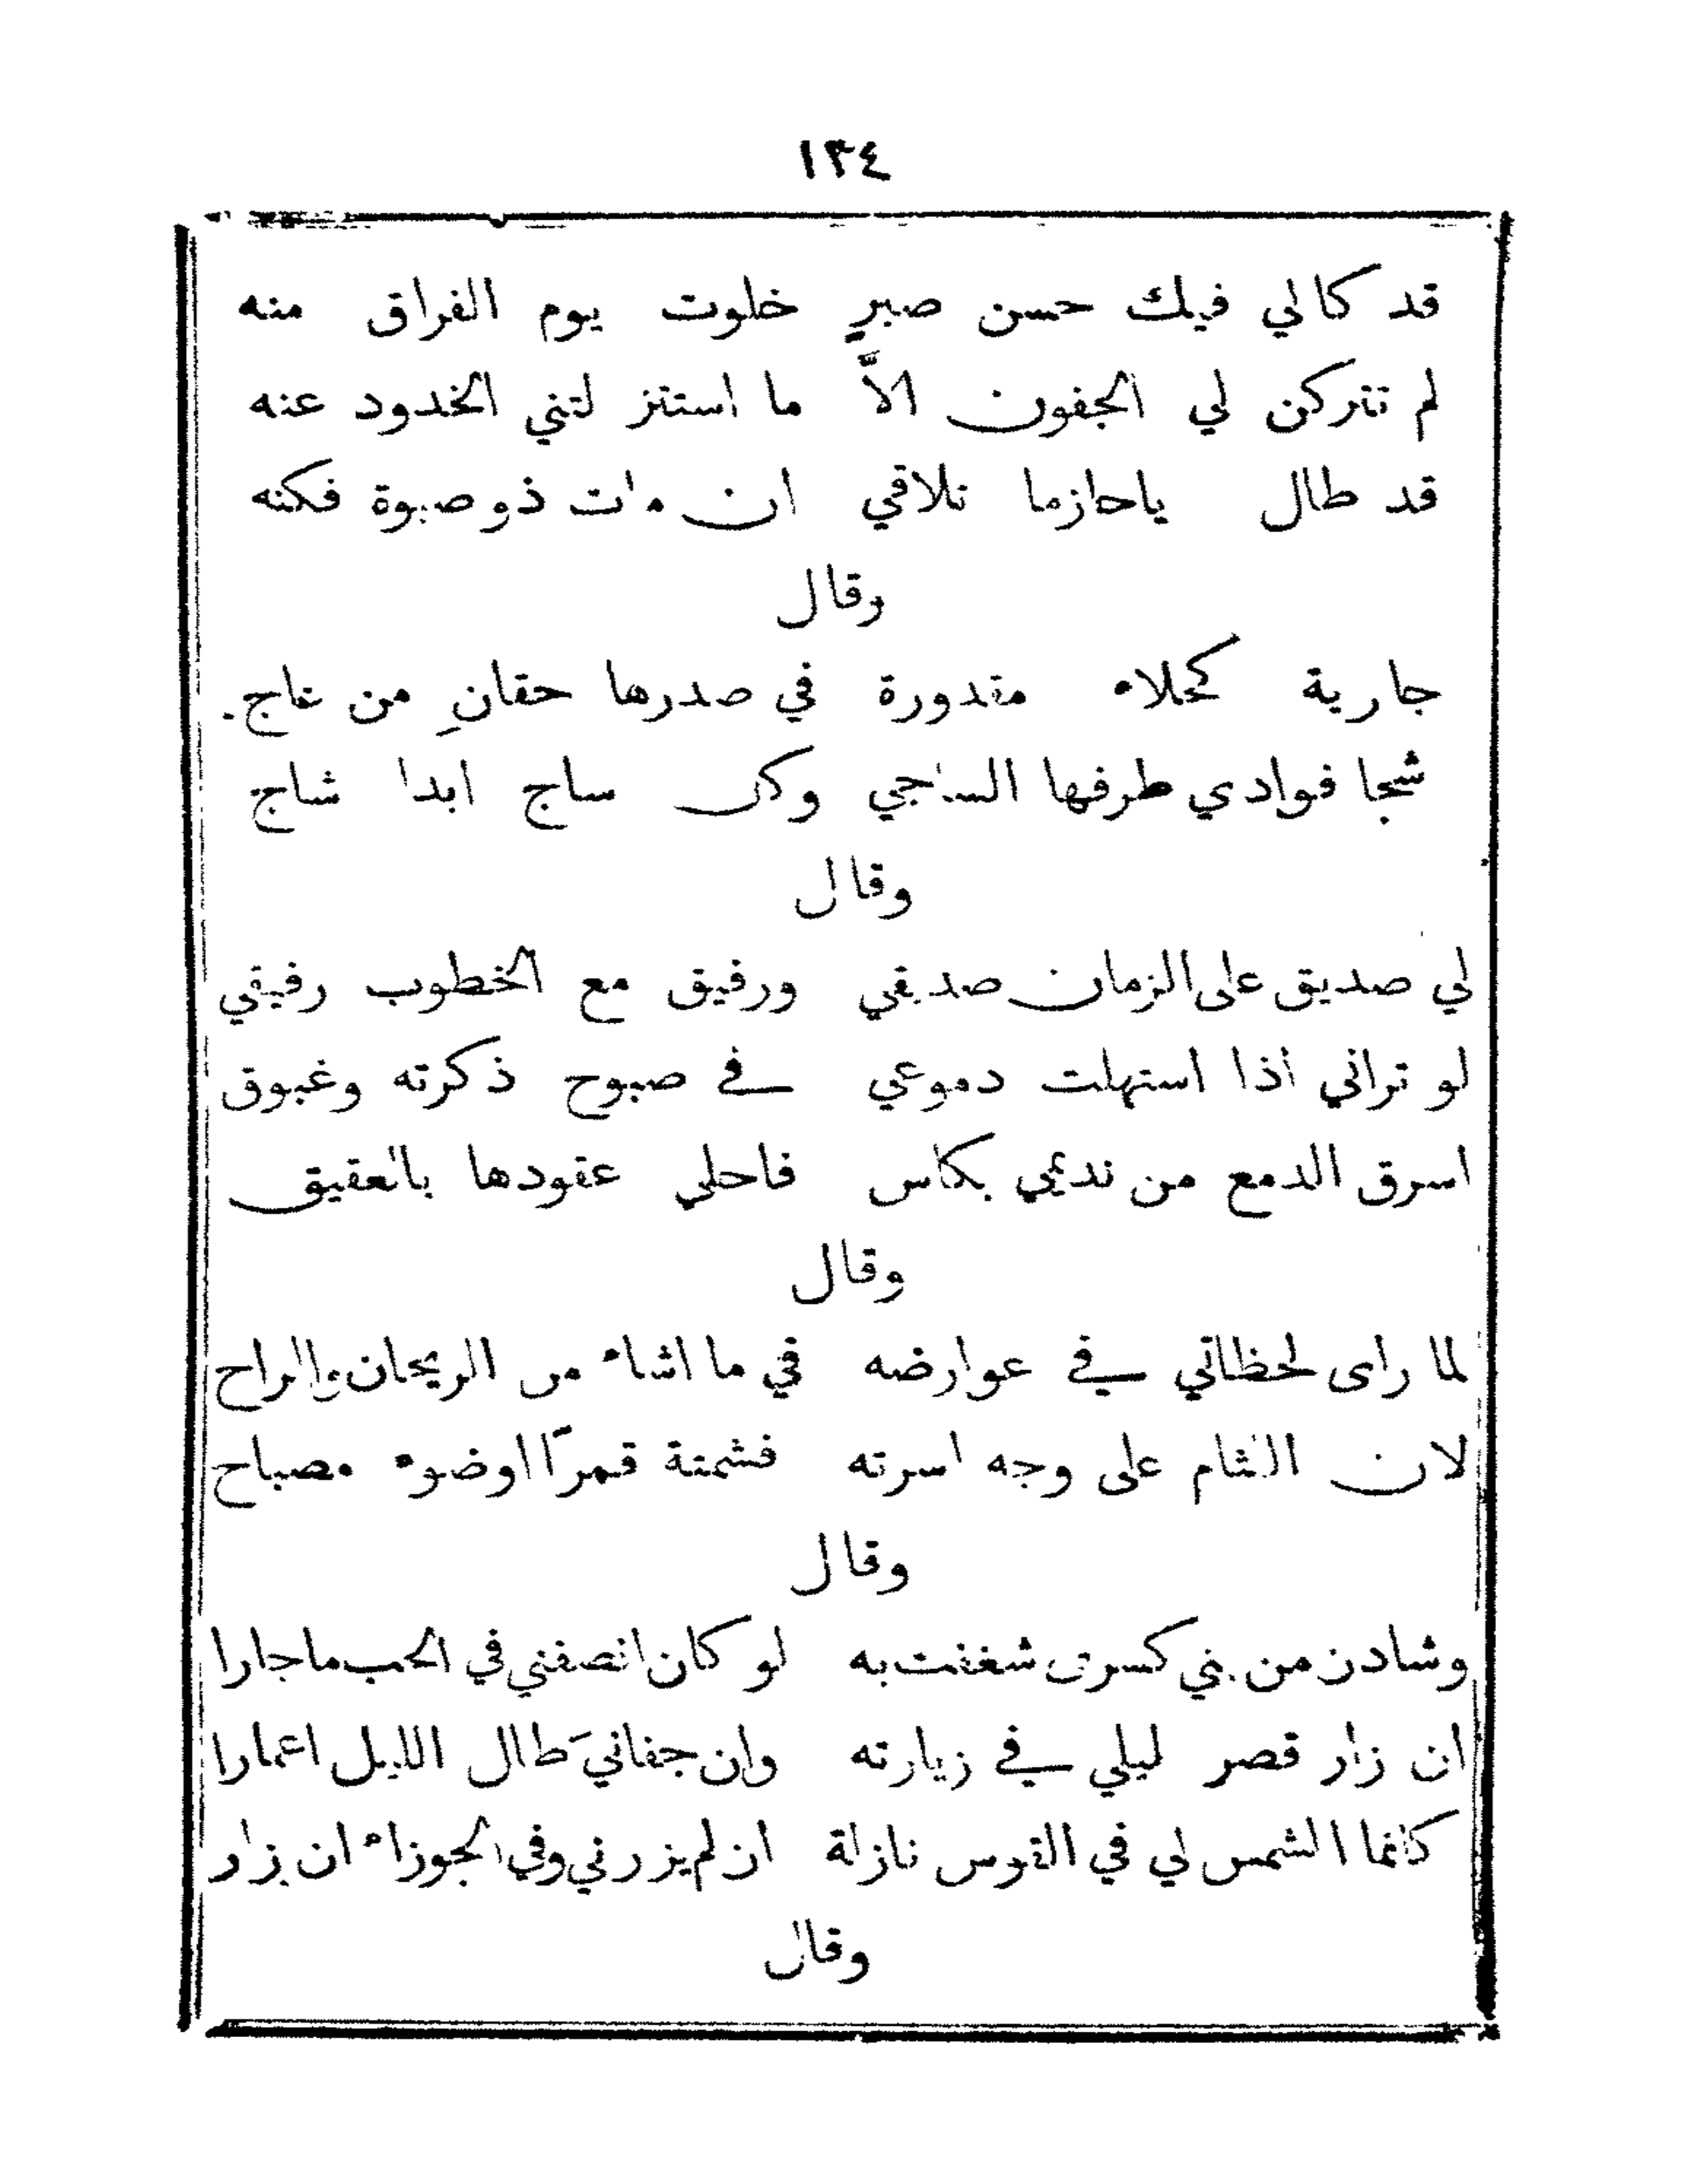 ١٣٤
قد كالي فيك حسن صبرٍ خلوت يوم الفراق منه
لم تتركن لي الجفون الاَّ ما استنز لتني الخدود عنه
قد طال ياحازما تلاقي ان مات ذو صبوة فكنه
وقال
جارية كحلاء مقدورة في صدرها حقانِ من عاج
شجا فوادي طرفها الساجي وكل ساج ابدا شاج
وقال
لي صديق على الزمان صديقي ورفيق مع الخطوب رفيقي
لو تراني اذا استهلت دموعي في صبوح ذكرته وغبوق
اسرق الدمع من نديمي بكاس فاحلي عقودها بالعقيق
وقال
لما راى لحظاتي في عوارضه في ما اشاء من الريحان والراح
لان اللثام على وجه اسرته فشمتة قمرًا اوضوء مصباح
وقال
وشادن من بني كسرى شغفت به لو كان انصفني في الحب ماجارا
ان زار قصر ليلي في زيارته وان جفانيَ طال الليل اعمارا
كانما الشمس لي في القوس نازلة ان لم يزرني وفي الجوزاء ان زار
وقال